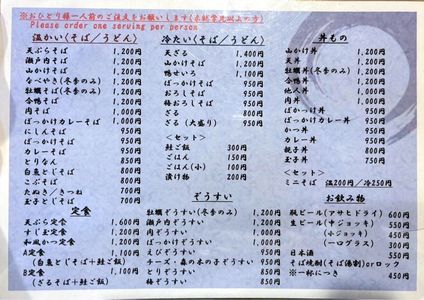 ※おひとり様一人前のご注文をお願いします(未就学児以上の方)
Please order one serving per person
温かい〈そば/うどん〉
天ぷらそば 1,200円
瀬戸内そば 1,200円
山かけそば 1,200円
なべやき(冬季のみ) 1,200円
牡蠣そば(冬季のみ) 1,200円
合鴨そば 1,200円
肉そば 1,000円
ぼっかけカレーそば 1,000円
にしんそば 950円
ぼっかけそば 950円
カレーそば 950円
とりなん 850円
白魚とじそば 850円
こぶそば 800円
たぬき/きつね 700円
玉子とじそば 700円
定食
天ぷら定食 1,600円
すじ玉定食 1,100円
和風かつ定食 1,100円
A定食 1,100円
(白魚とじそば+鮭ご飯)
B定食 1,100円
(ざるそば+鮭ご飯)
冷たい〈そば/うどん〉
天ざる 1,400円
山かけ 1,200円
鴨せいろ 1,100円
ぼっかけそば 950円
おろしそば 950円
梅おろしそば 950円
ざる 800円
ざる(大盛り) 950円
<セット>
鮭ご飯 300円
ごはん 150円
ごはん(小) 100円
漬け物 200円
ぞうすい
牡蠣ぞうすい(冬季のみ) 1,200円
瀬戸内ぞうすい 1,200円
肉ぞうすい 1,000円
ぼっかけぞうすい 950円
えびぞうすい 950円
チーズ・森の木の子ぞうすい 950円
とりぞうすい 850円
梅ぞうすい 850円
丼もの
山かけ丼 1,200円
天丼 1,200円
牡蠣丼(冬季のみ) 1,200円
合鴨丼 1,200円
他人丼 1,000円
肉丼 1,000円
ぼっかけ丼 950円
かつ丼 950円
カレー丼 950円
銚子丼 850円
玉子丼 750円
<セット>
ミニそば 温200円/冷250円
お飲み物
瓶ビール(アサヒドライ) 600円
生ビール(中ジョッキ) 550円
(小ジョッキ) 450円
(一口グラス) 300円
日本酒 550円
そば焼酎(そば湯割)orロック
※一杯につき 450円